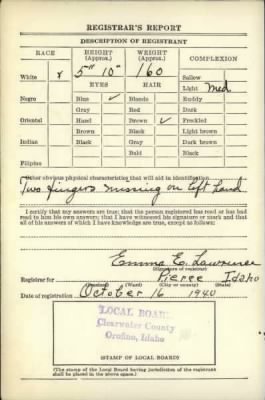 REGISTRAR'S REPORT
DESCRIPTION OF REGISTRANT
RACE HEIGHT (Approx.) WEIGHT (Approx.) COMPLEXION
White x 5" 10" 160 Sallow
EYES HAIR Light med
Negro Blue ✓ Blonde Ruddy
Gray Red Dark
Oriental Hazel Brown ✓ Freckled
Brown Black Light brown
Indian Black Gray Dark brown
Bald Black
Filipino
Other obvious physical characteristics that will aid in identification
Two fingers missing on left hand
I certify that my answers are true; that the person registered has read or has had
read to him his own answers; that I have witnessed his signature or mark and that
all of his answers of which I have knowledge are true, except as follows:
Emma E. Lawrence
(Signature of registrar)
Registrar for Pierce Idaho
(Precinct) (Ward) (City or county) (State)
Date of registration October 16 1940
LOCAL BOARD
Clearwater County
Orofino, Idaho
(STAMP OF LOCAL BOARD)
(The stamp of the Local Board having jurisdiction of the registrant
shall be placed in the above space.)